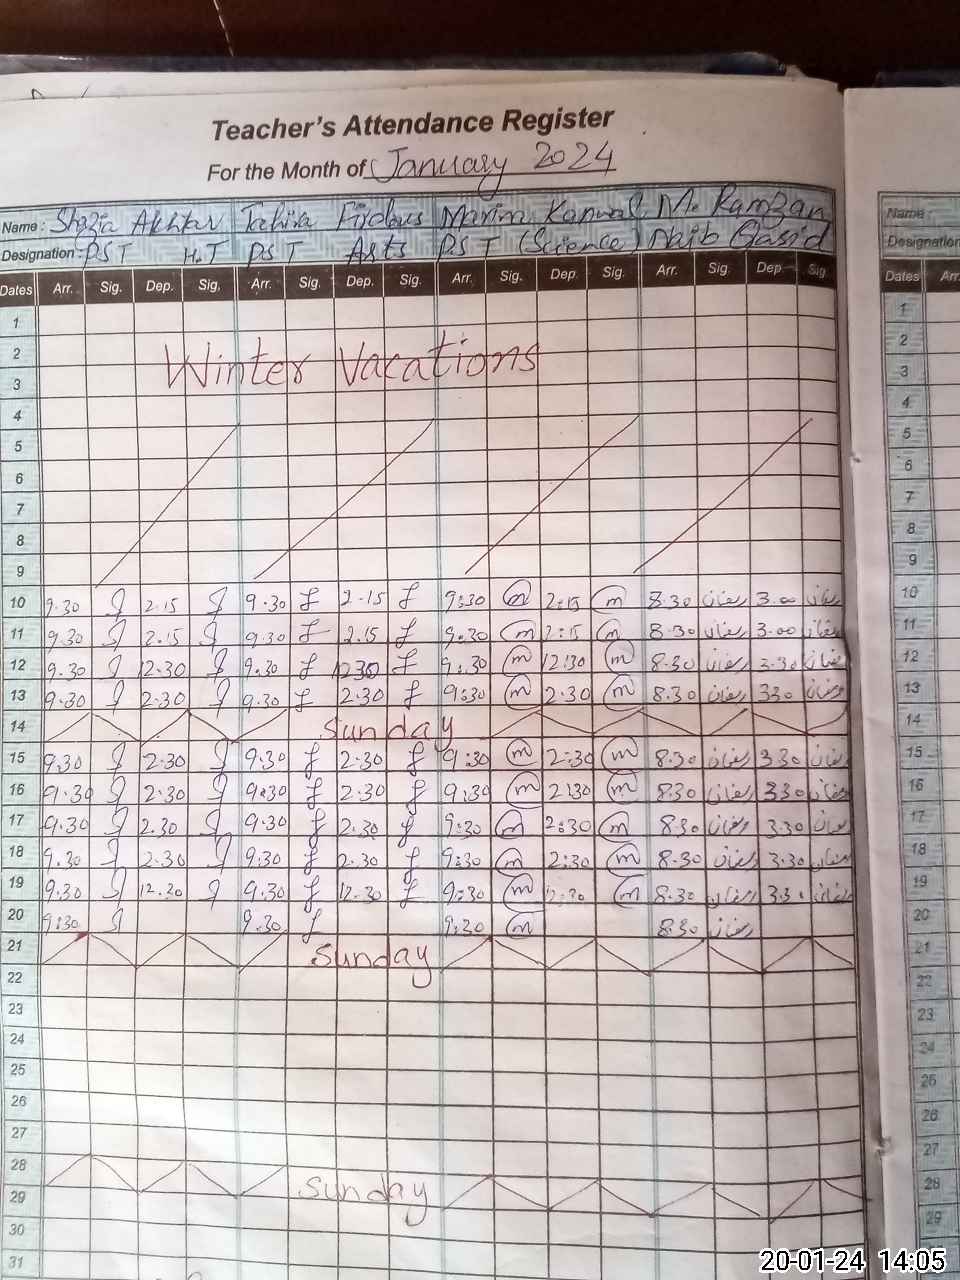 Teacher's Attendance Register
For the Month of January 2024
Name: Shazia Akhtar Tahira Firdous Marim Kanwal M. Ramzan
Designation: PST H.T PST Arts PST (Science) Naib Qasid
Dates Arr. Sig. Dep. Sig. Arr. Sig. Dep. Sig. Arr. Sig. Dep. Sig. Arr. Sig. Dep. Sig
1
2 Winter Vacations
3
4
5
6
7
8
9
10 9.30 2.15 9.30 f 2.15 f 9:30 m 2:15 m 8.30 رمضان 3.00 رمضان
11 9.30 2.15 9.30 f 2.15 f 9:30 m 2:15 m 8.30 رمضان 3.00 رمضان
12 9.30 12.30 9.30 f 1230 f 9:30 m 12:30 m 8.30 رمضان 3.30 رمضان
13 9.30 2.30 9.30 f 2.30 f 9:30 m 2.30 m 8.30 رمضان 330 رمضان
14 Sunday
15 9.30 2.30 9.30 f 2.30 f 9:30 m 2:30 m 8.30 رمضان 330 رمضان
16 9.30 2.30 9:30 f 2.30 f 9:30 m 2:30 m 830 رمضان 330 رمضان
17 9.30 2.30 9.30 f 2.30 f 9:30 m 2:30 m 8.30 رمضان 3.30 رمضان
18 9.30 2.30 9.30 f 2.30 f 9:30 m 2:30 m 8.30 رمضان 3.30 رمضان
19 9.30 12.30 9.30 f 12.30 f 9:30 m 12:30 m 8.30 رمضان 3.30 رمضان
20 9:30 9.30 f 9:30 m 8.30 رمضان
21 Sunday
22
23
24
25
26
27
28 Sunday
29
30
31
Name:
Designation
Dates Arr.
1
2
3
4
5
6
7
8
9
10
11
12
13
14
15
16
17
18
19
20
21
22
23
24
25
26
27
28
29
20-01-24 14:05